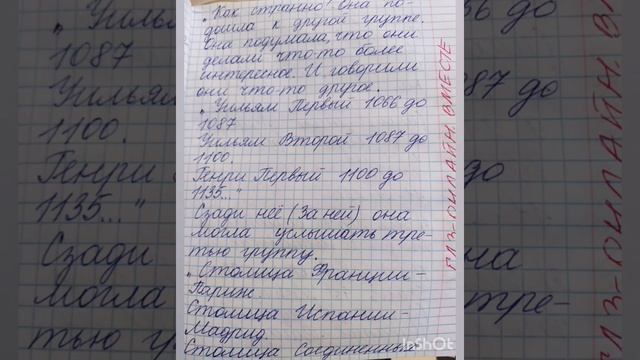 „Как странно! Она по-
дошла к другой группе.
Она подумала, что они
делали что-то более
интересное. И говорили
они что-то другое.
„Уильям Первый 1066 до
1087
Уильям Второй 1087 до
1100.
Генри Первый 1100 до
1135..."
Сзади неё (За ней) она
могла услышать тре-
тью группу.
„Столица Франции -
Париж
Столица Испании -
Мадрид
Столица Соединенных
ГДЗ-ОНЛАЙН. ВМЕСТЕ
InShOt